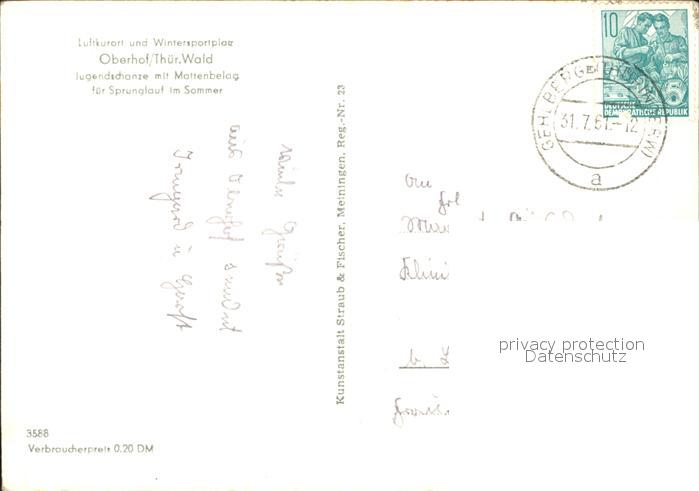 Luftkurort und Wintersportplatz
Oberhof/Thür. Wald
Jugendschanze mit Mattenbelag
für Sprunglauf im Sommer
10
DEUTSCHE
DEMOKRATISCHE REPUBLIK
GEHLBERG (THÜR
31.7.61.-12
a
Kunstanstalt Straub & Fischer, Meiningen. Reg.-Nr. 23
Grüße
aus Oberhof sendet
Irmgard u
An
privacy protection
Datenschutz
3588
Verbraucherpreis 0.20 DM